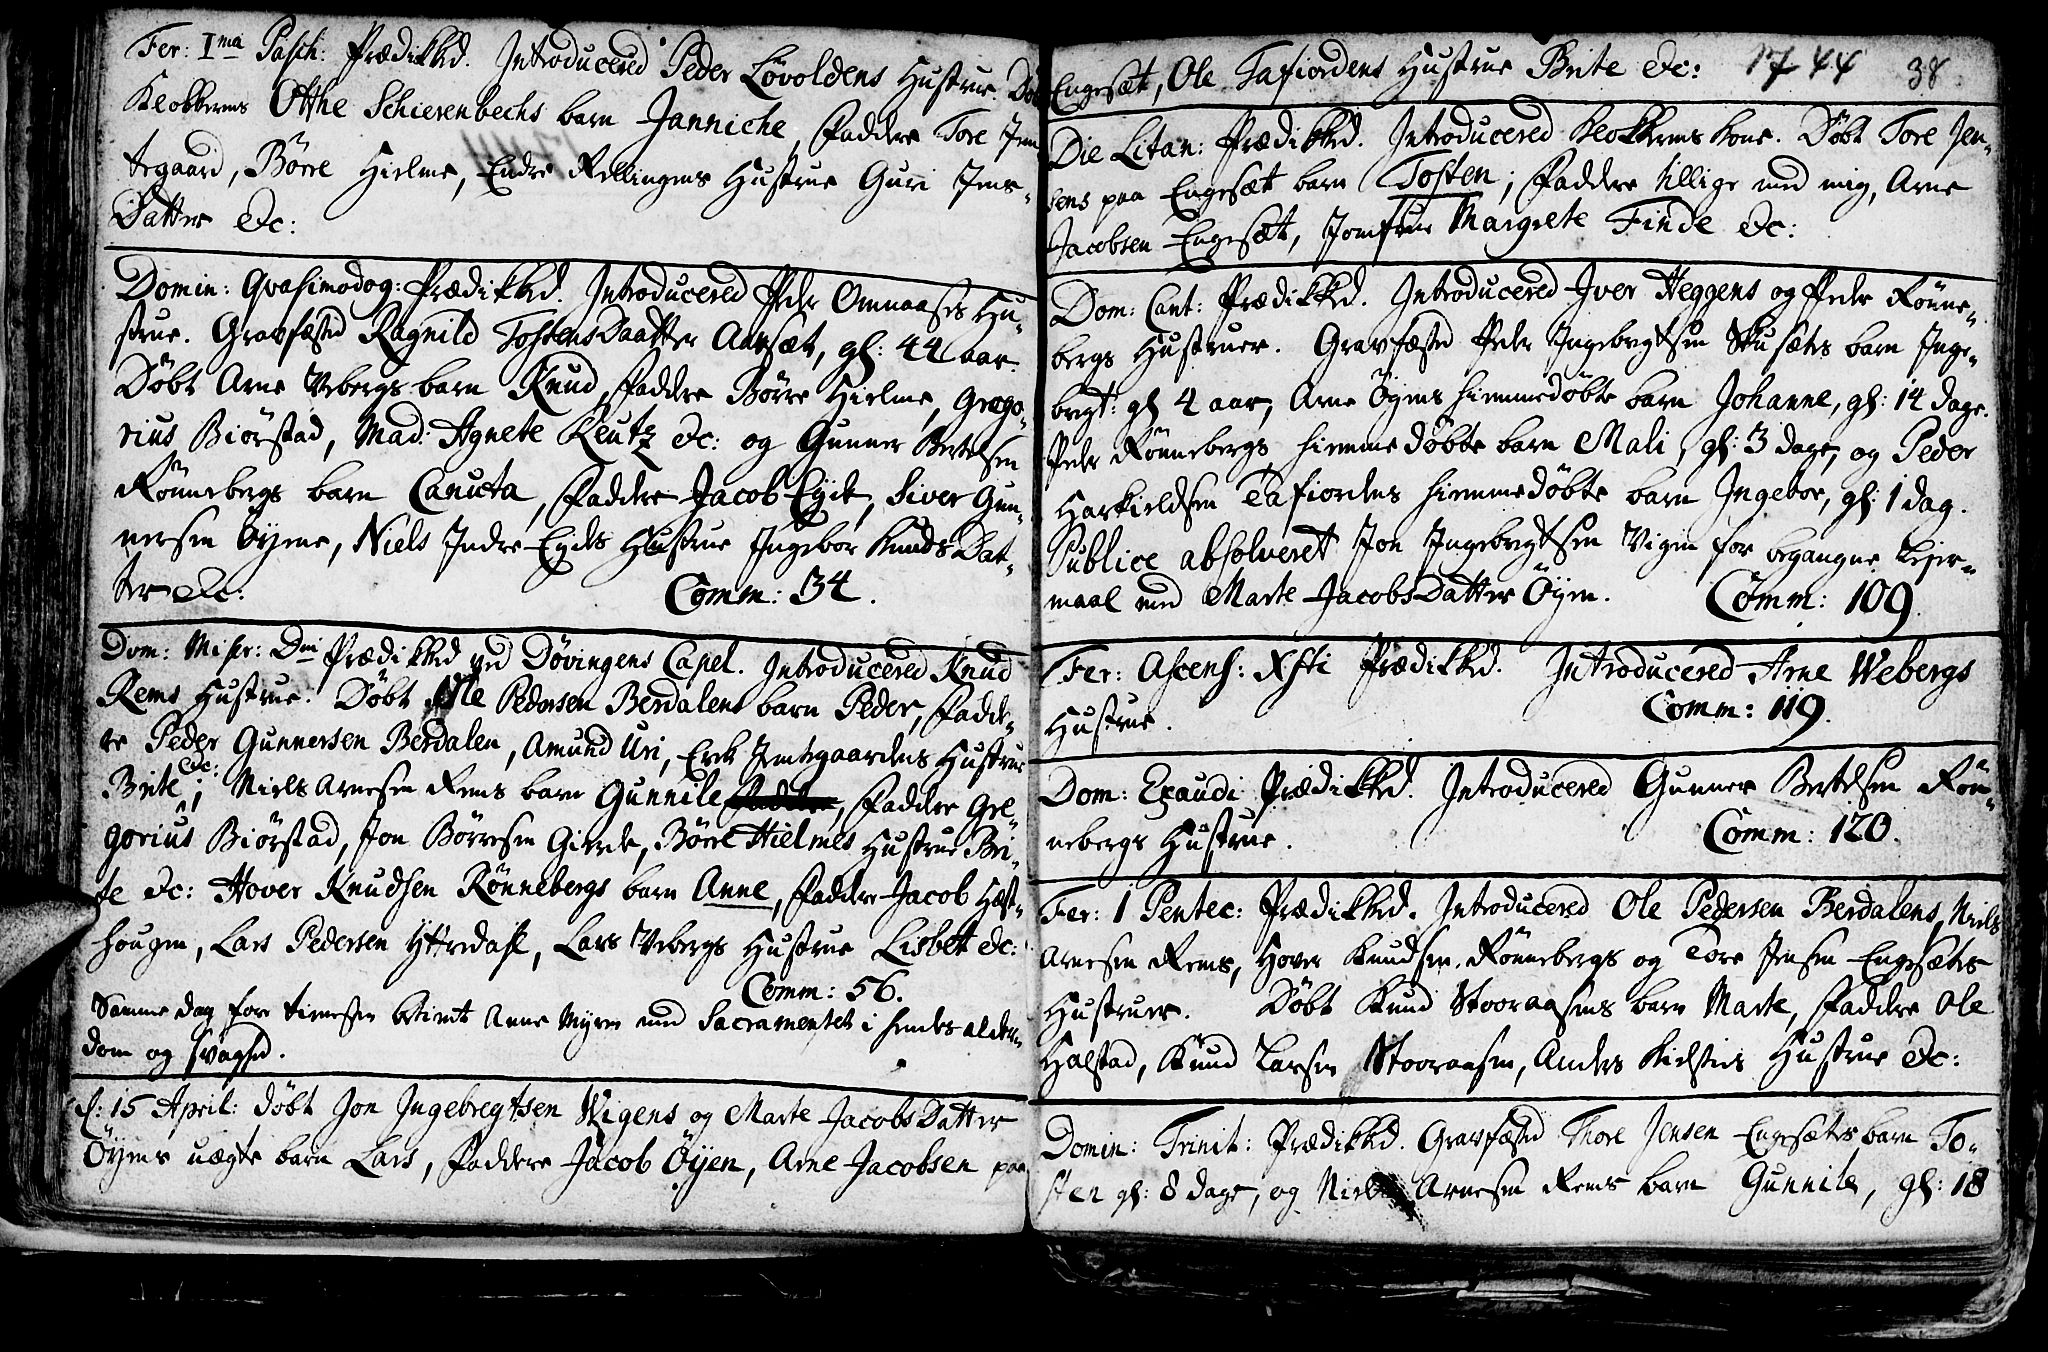 Fer: 1ma Pasch: Prædikked. Introducered Peder Lövoldens Hustrue. Döbt
Klokkerens Otthe Schierenbechs barn Janniche, Faddere Tore Jem
tegaard, Börre Hielme, Endre Rellingens Hustrue Guri Jens-
Datter &c:
Domin: Qvasimodog: Prædikked. Introducered Peder Omnaases Hu-
strue. Gravfæsted Ragnild TostensDaatter Aarsæt, gl: 44 aar.
Döbt Arne Vebergs barn Knud, Faddere Börre Hielme, Grego-
rius Biörstad, Mad: Agnete Reutz &c: og Gunner Bertelsen
Rönnebergs barn Canuta, Faddere Jacob Eyde, Siver Gun-
nersen Öyene, Niels Indre Eydes Hustrue Ingebor KnudsDat-
ter &c: Comm: 34.
Dom: Miser: Dni Prædikked ved Dövingens Capel. Introducered Knud
Rems Hustrue. Döbt Ole Pedersen Berdalens barn Peder, Fadde-
re Peder Gunnersen Berdalen, Amund Uri, Erik Jemtegaardens Hustrue
Brite &c:, Niels Arnesen Rems barn Gunnile, Faddere Gre-
gorius Biörstad, Jon Börresen Gierde, Börre Hielmes Hustrue Bri-
te &c: Hover Knudsen Rönnebergs barn Anne, Faddere Jacob Hæst-
hougen, Lars Pedersen Yttredahl, Lars Vebergs Hustrue Lisbet &c:
Comm: 56.
Samme dag for tienesten betient Anne Myren med Sacramentet i hendes alder-
dom og svaghed.
d: 15 April: döbt Jon Ingebregtsen Wigens og Marte JacobsDatter
Öyens uægte barn Lars, Faddere Jacob Öyen, Arne Jacobsen paa
Engesæt, Ole Tafiordens Hustrue Brite &c: 1744 38
Die Litan: Prædikked. Introducered Klokkerens kone. Döbt Tore Jen-
sens paa Engesæt barn Tosten; Faddere tillige med mig, Arne
Jacobsen Engesæt, Jomfrue Margrete Finde &c:
Dom: Cant: Prædikked. Introducered Iver Heggens og Peder Rönne-
bergs Hustruer. Gravfæsted Peder Ingebregtsen Skusæts barn Inge-
bregt: gl 4 aar, Arne Öyens hiemmedöbte barn Johanne, gl: 14 dage.
Peder Rönnebergs hiemmedöbte barn Mali, gl: 3 dage, og Peder
Harkieldsen Tafiordens hiemmedöbte barn Ingebor, gl: 1 dag.
Publice absolveret Jon Ingebregtsen Vigen for begangne Leyer-
maal med Marte JacobsDatter Öyen. Comm: 109.
Fer: Ascens: Xsti Prædikked. Introducered Arne Webergs
Hustrue. Comm: 119.
Dom: Exaudi Prædikked. Introducered Gunner Bertelsen Rön-
nebergs Hustrue. Comm: 120.
Fer: 1 Pentec: Prædikked. Introducered Ole Pedersen Berdalens, Niels
Arnesen Rems, Hover Knudsen Rönnebergs og Tore Jensen Engesæts
Hustruer. Döbt Knud Stooraasens barn Marte, Faddere Ole
Halstad, Knud Larsen Stooraasen, Anders Kielsties Hustrue &c:
Domin: Trinit: Prædikked. Gravfæsted Thore Jensen Engesæts barn To-
sten gl: 8 dage, og Niels Arnesen Rems barn Gunnile, gl: 18